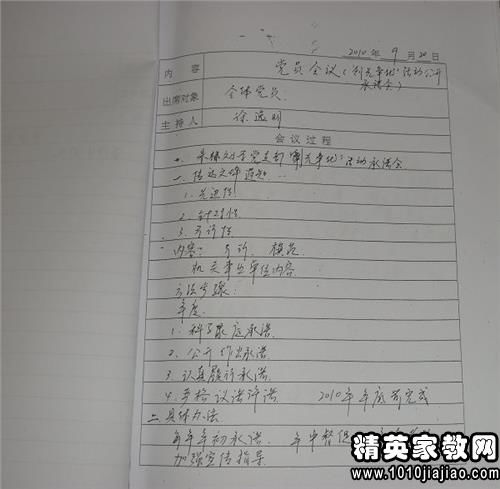 2010 年 9 月 20 日
内 容 党员会议("创先争优"活动公开
承诺会)
出席对象 全体党员
主持人 徐逸明
会议过程
党支部"创先争优"活动承诺会
一. 传达文件通知
1. 先进性
2. 针对性
3.
内容: 模范
机关事业单位内容
方法步骤:
年度:
1. 科学 承诺
2. 公开作出承诺
3. 认真履行承诺
4. 严格议诺评诺 2010年年底前完成
二 具体办法
每年年初承诺. 年中督促
加强宣传指导
精英家教网
www.1010jiajiao.com